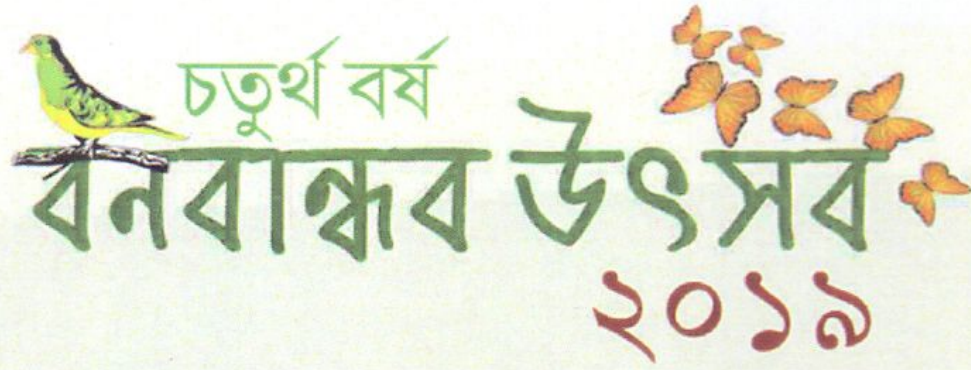 চতুর্থ বর্ষ
বনবান্ধব উৎসব
২০১৯